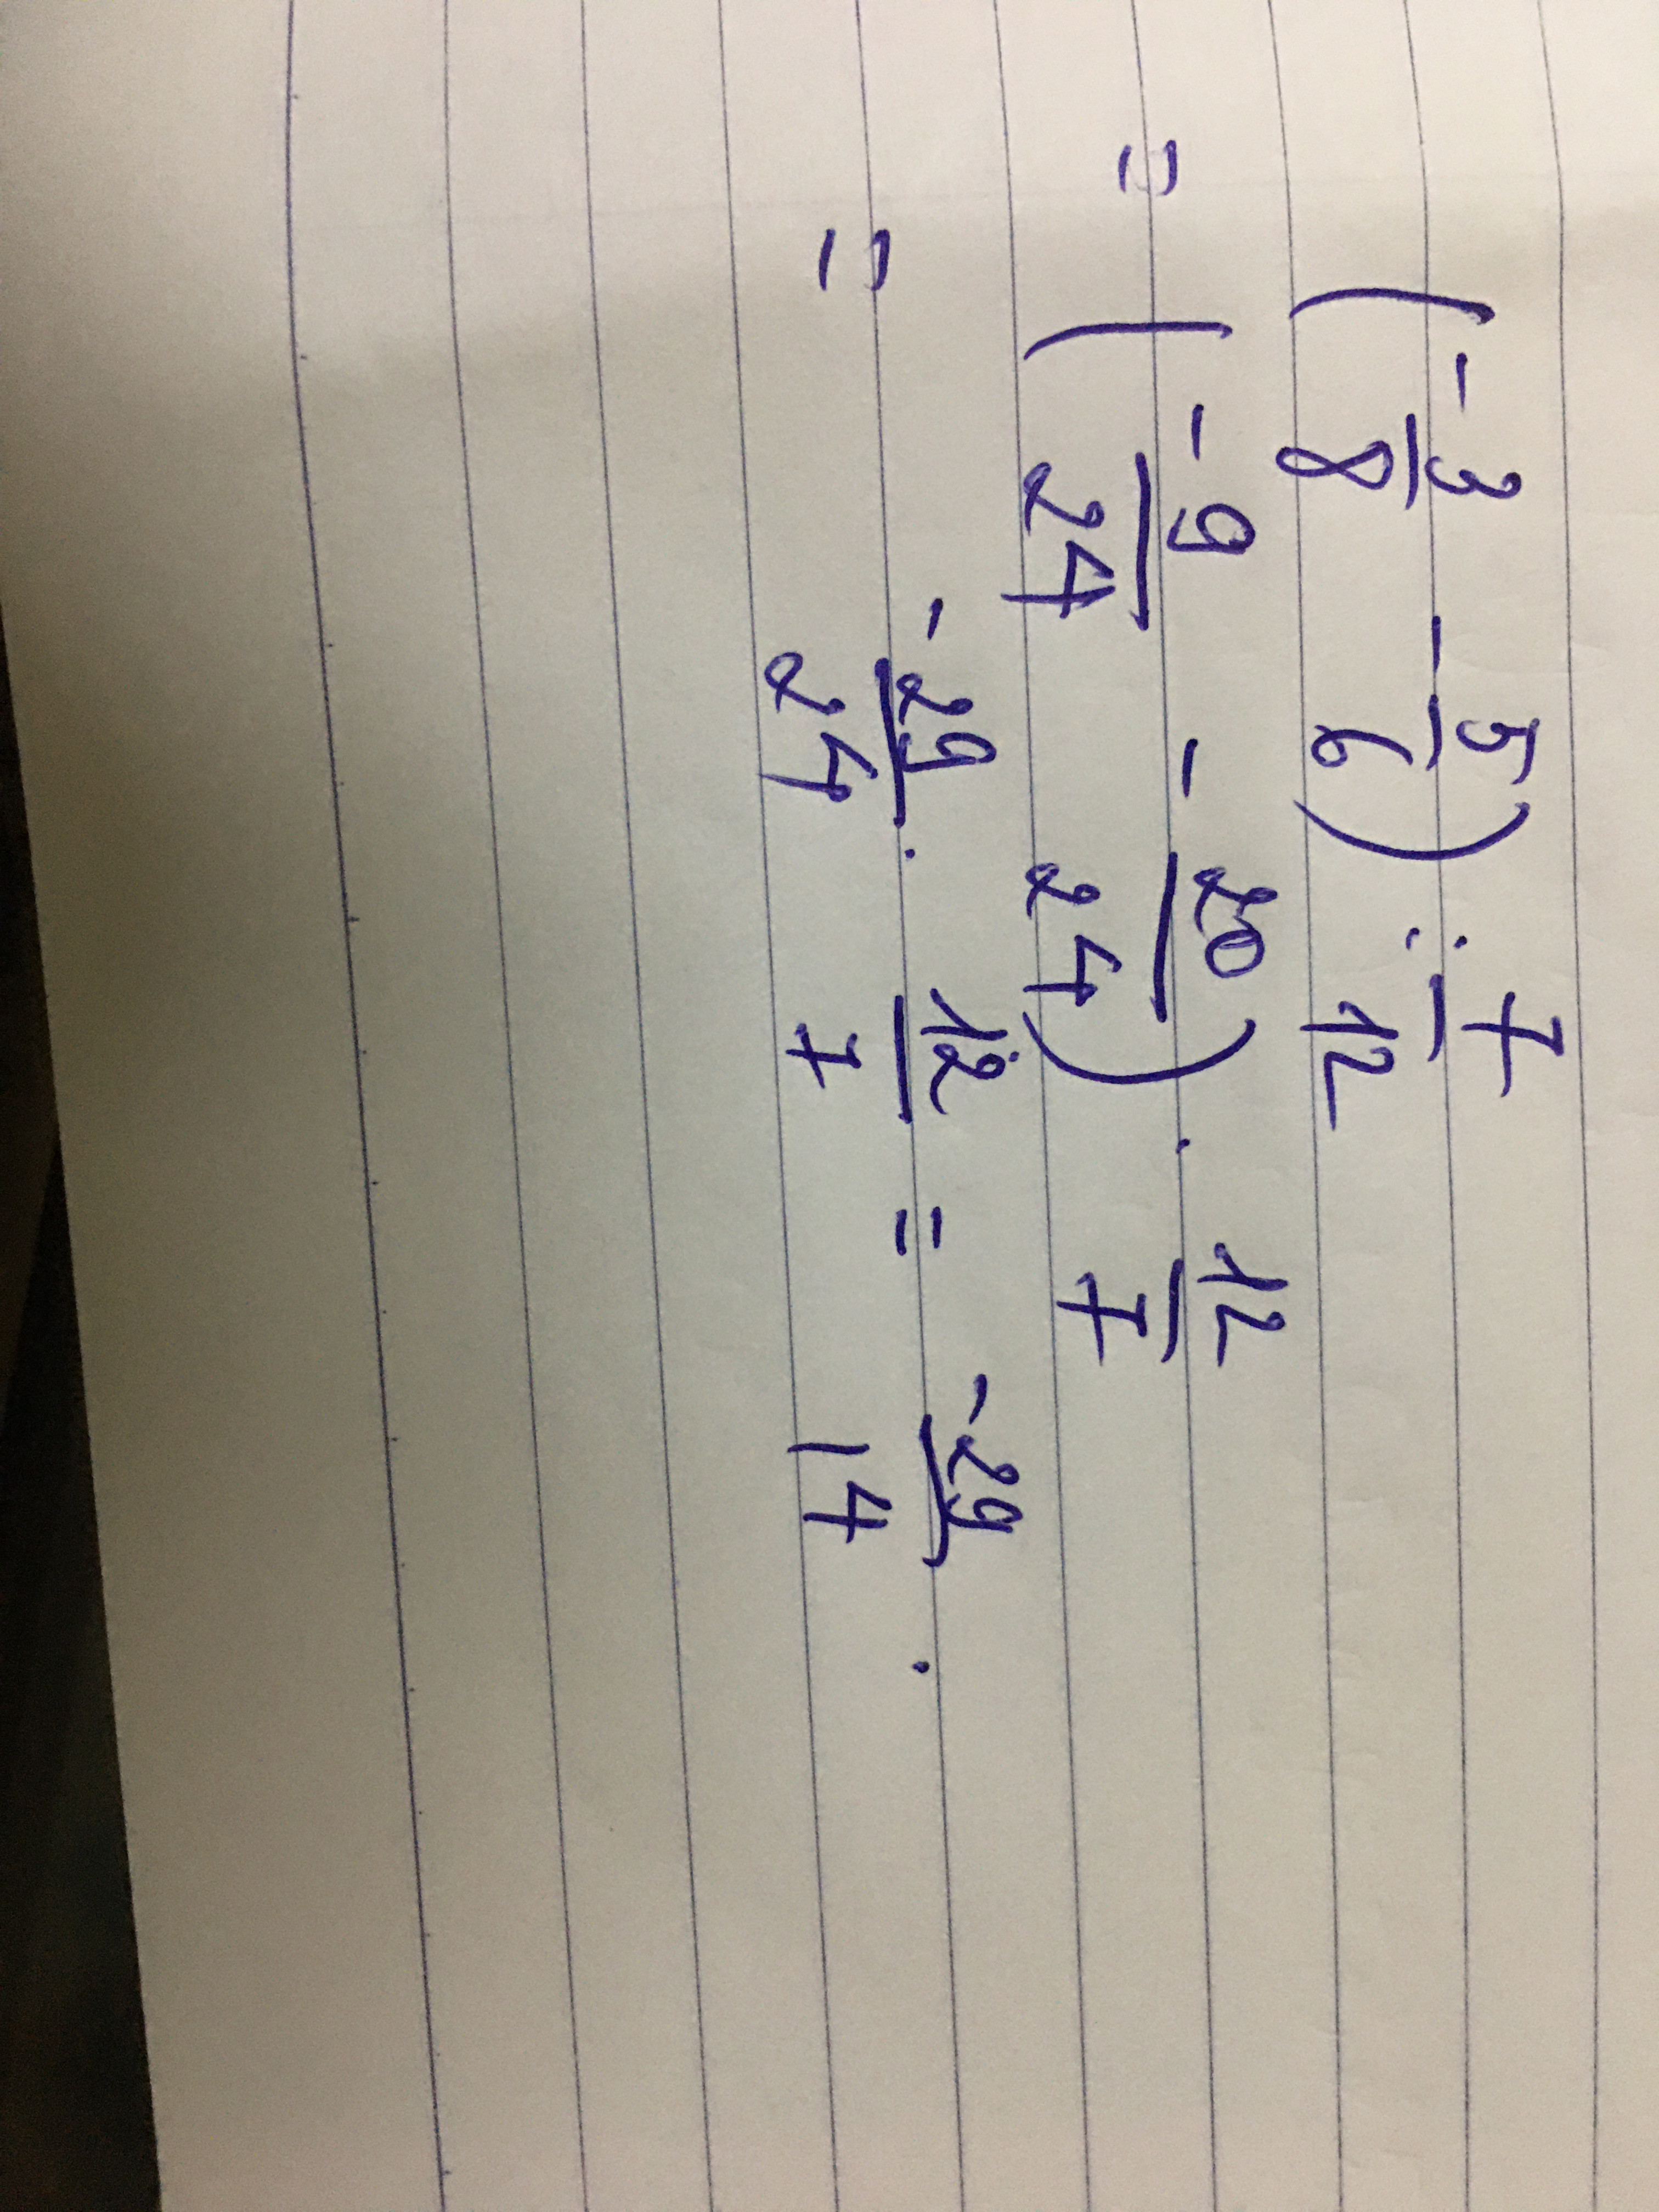 (-3/8 - 5/6) : 7/12
= (-9/24 - 20/24) . 12/7
= -29/24 . 12/7 = -29/14 .